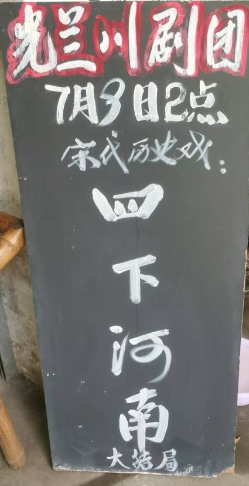 光兰川剧团
7月3日2点
宋代历史戏：
四
下
河
南
大结局